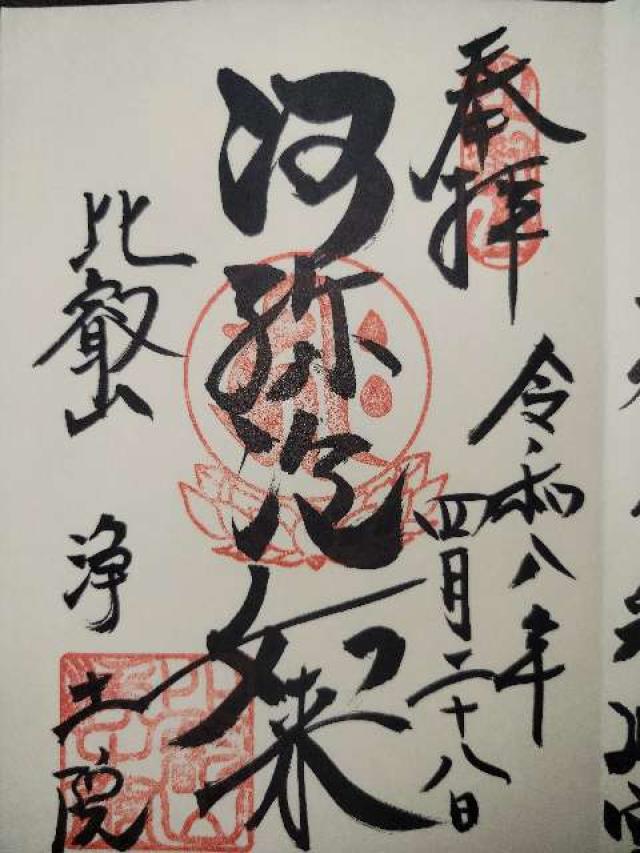 奉拝
令和八年
四月二十八日
阿弥陀如来
比叡山
浄土院